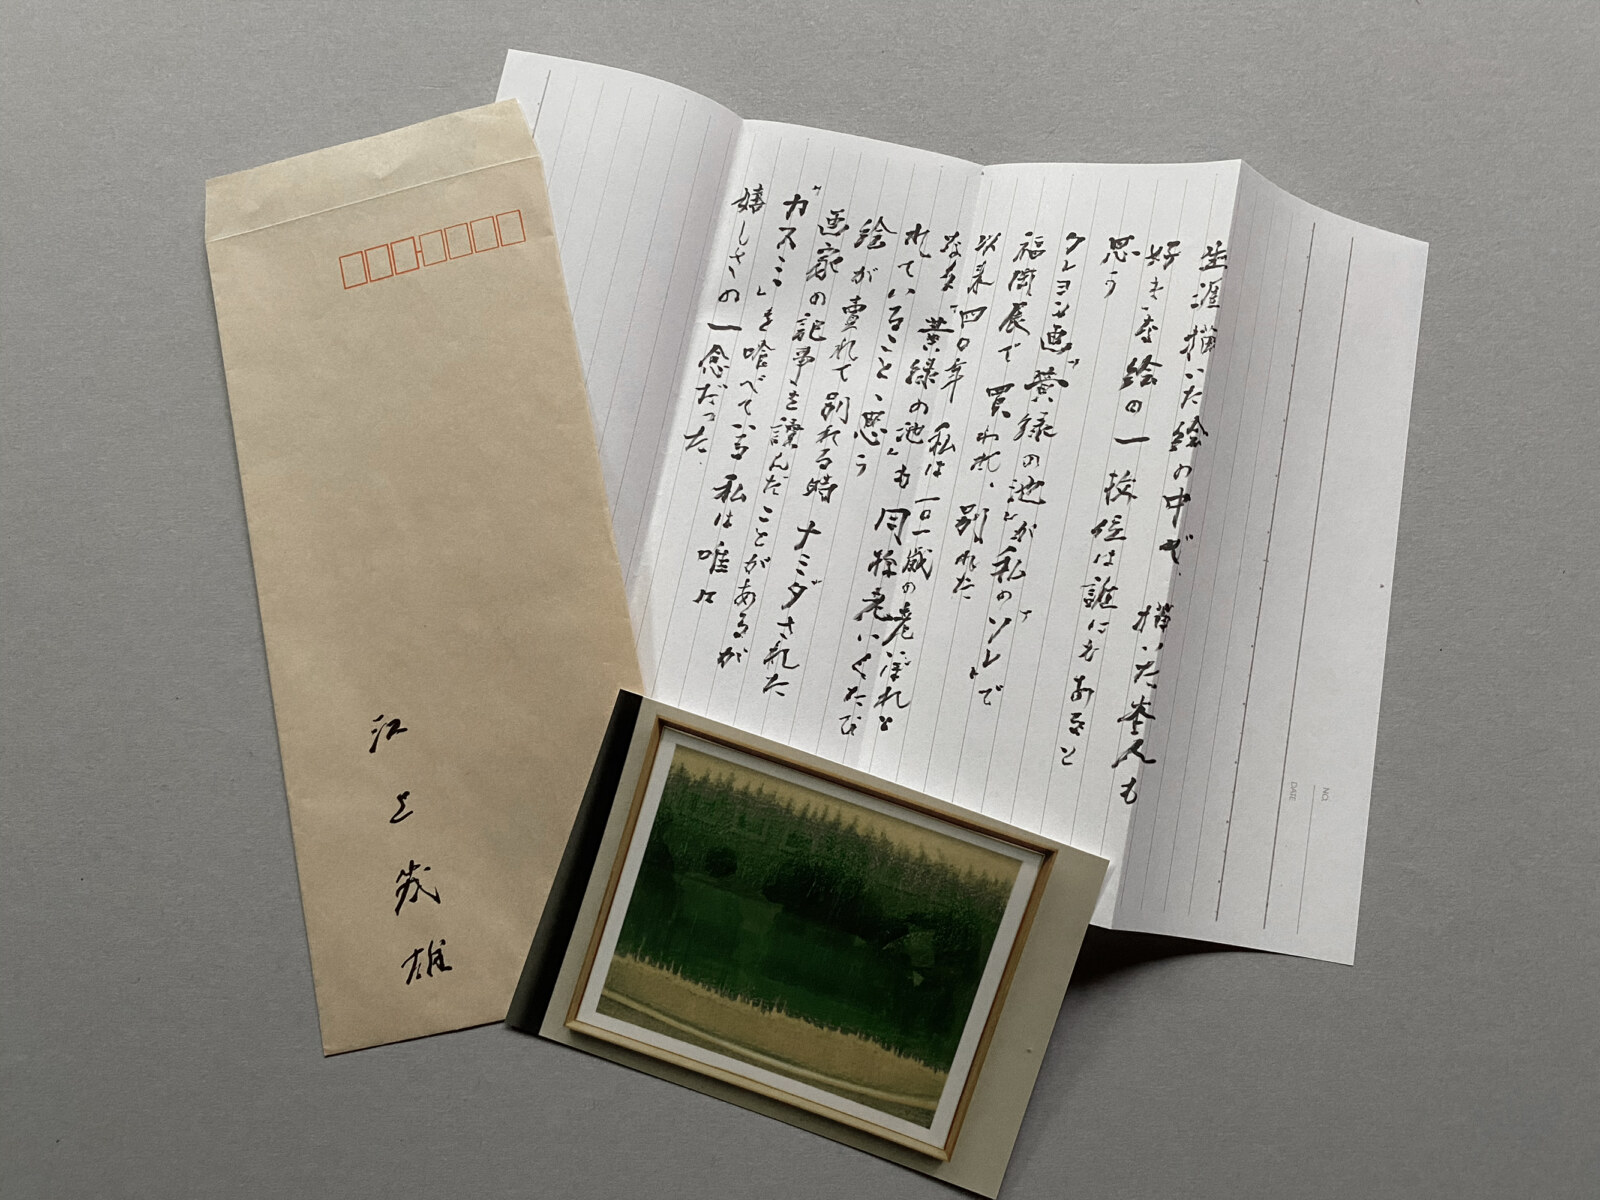 生涯描いた絵の中で、描いた本人も
好きな絵の一枚位は誰にもあると
思う
クレヨン画「黄緑の池」が私の「ソレ」で
福岡展で買われ、別れた
以来四〇年 私は一〇一歳の老いぼれと
なり「黄緑の池」も同様老いくたび
れていること、思う
絵が賣れて別れる時 ナミダされた
画家の記事を讀んだことがあるが
「カスミ」を喰べている私は唯々
嬉しさの一念だった.
江上茂雄
NO.
DATE